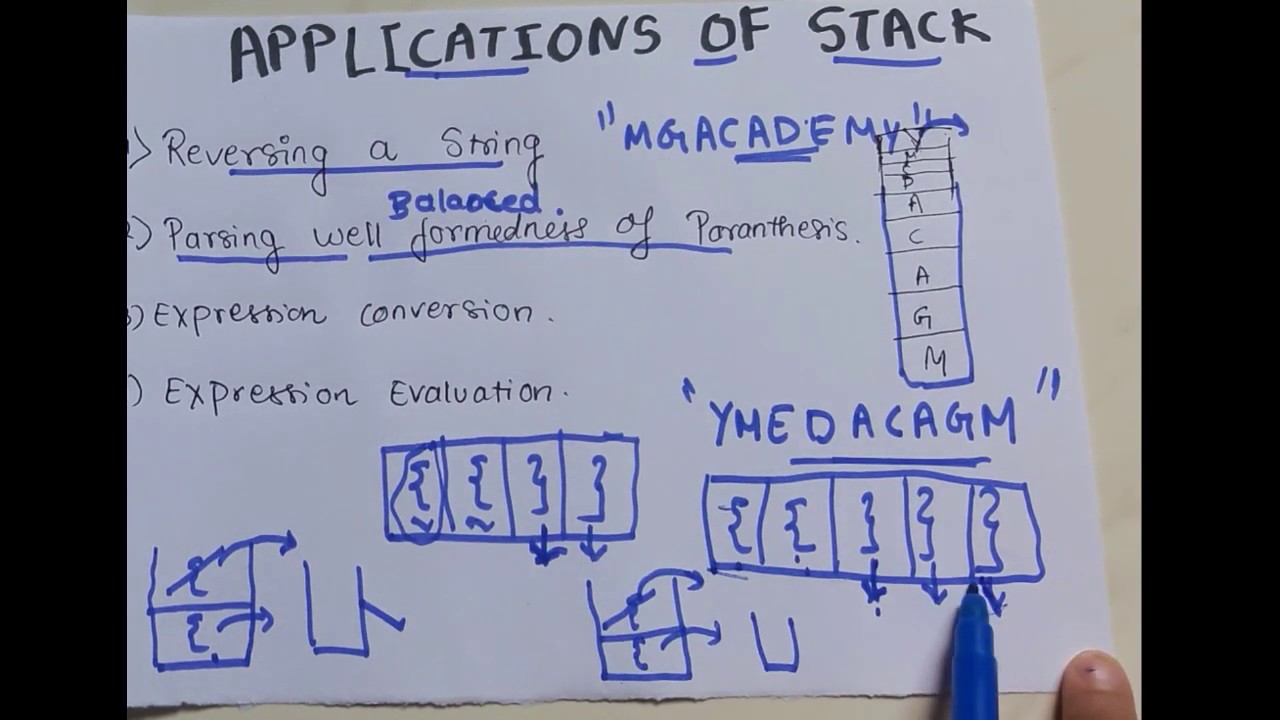 APPLICATIONS OF STACK
) Reversing a String
"MGACADEMY"
Balanced.
2) Parsing well formedness of Paranthesis.
) Expression conversion.
) Expression Evaluation.
Y
M
E
D
A
C
A
G
M
"YMEDACAGM"
{ { } }
{ { } } }
{
{
{
{